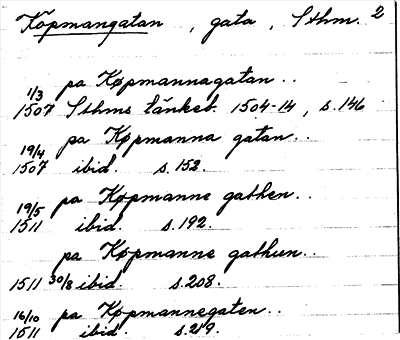 Köpmangatan, gata, Sthm. 2
pa Køpmannagatan..
1/3 1507 Sthms tänkeb. 1504-14, s. 146
pa Køpmanna gatan..
19/4 1507 ibid. s. 152.
pa Køpmanne gathen..
19/5 1511 ibid. s. 192.
pa Køpmanne gathun..
1511 30/8 ibid. s. 208.
pa Køpmannegaten..
16/10 1511 ibid. s. 219.